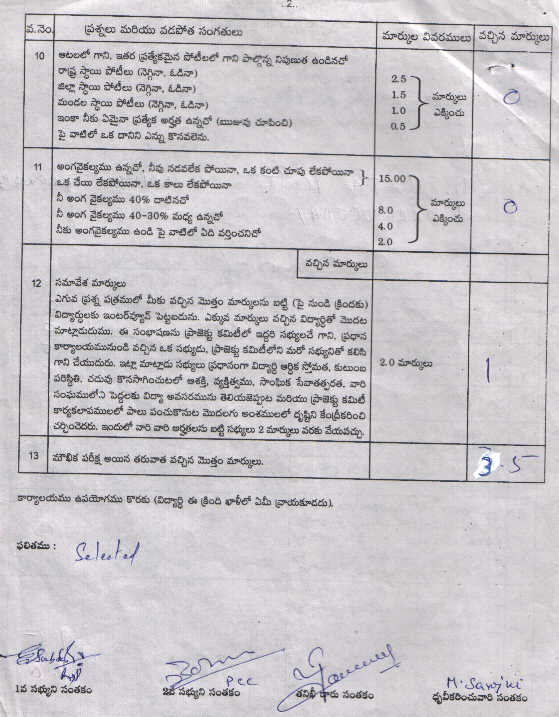 ..2..
వ.నెం. ప్రశ్నలు మరియు వడపోత సంగతులు మార్కుల వివరములు వచ్చిన మార్కులు
10 ఆటలలో గాని, ఇతర ప్రత్యేకమైన పోటీలలో గాని పాల్గొన్న నిపుణుత ఉండినచో
రాష్ట్ర స్థాయి పోటీలు (నెగ్గినా, ఓడినా) 2.5
జిల్లా స్థాయి పోటీలు (నెగ్గినా, ఓడినా) 1.5 మార్కులు 0
మండల స్థాయి పోటీలు (నెగ్గినా, ఓడినా) 1.0 ఎక్కించు
ఇంకా నీకు ఏమైనా ప్రత్యేక అర్హత ఉన్నచో (యుజువు చూపించి) 0.5
పై వాటిలో ఒక దానిని ఎన్ను కొనవలెను.
11 అంగవైకల్యము ఉన్నచో, నీవు నడవలేక పోయినా, ఒక కంటి చూపు లేకపోయినా
ఒక చేయి లేకపోయినా, ఒక కాలు లేకపోయినా 15.00
నీ అంగ వైకల్యము 40% దాటినచో మార్కులు 0
నీ అంగ వైకల్యము 40-30% మధ్య ఉన్నచో 8.0 ఎక్కించు
నీకు అంగవైకల్యము ఉండి పై వాటిలో ఏది వర్తించనిచో 4.0
2.0
వచ్చిన మార్కులు
12 సమావేశ మార్కులు
ఎగువ ప్రశ్న పత్రములో మీకు వచ్చిన మొత్తం మార్కులను బట్టి (పై నుండి క్రిందకు)
విద్యార్థులకు ఇంటర్వ్యూలో పెట్టబడును. ఎక్కువ మార్కులు వచ్చిన విద్యార్థితో మొదట
మాట్లాడుదుము. ఈ సంభాషణను ప్రాజెక్టు కమిటీలో ఇద్దరి సభ్యులచే గాని, ప్రధాన
కార్యాలయమునుండి వచ్చిన ఒక సభ్యుడు, ప్రాజెక్టు కమిటీలోని మరో సభ్యునితో కలిసి
గాని చేయుదురు. ఇట్లా మాట్లాడు సభ్యులు ప్రధానంగా విద్యార్థి ఆర్థిక స్తోమత, కుటుంబ
పరిస్థితి, చదువు కొనసాగించుటలో ఆశక్తి, వ్యక్తిత్వము, సాంఘిక సేవాతత్పరత, వారి 2.0 మార్కులు 1
సంఘములోని పెద్దలకు విద్యా అవసరమును తెలియజెప్పుట మరియు ప్రాజెక్టు కమిటీ
కార్యకలాపములలో పాలు పంచుకొనుట మొదలగు అంశములలో దృష్టిని కేంద్రీకరించి
చర్చించెదరు. ఇందులో వారి వారి అర్హతలను బట్టి సభ్యులు 2 మార్కులు వరకు వేయవచ్చు.
13 మౌఖిక పరీక్ష అయిన తరువాత వచ్చిన మొత్తం మార్కులు. 3.5
కార్యాలయము ఉపయోగము కొరకు (విద్యార్థి ఈ క్రింది ఖాళీలో ఏమీ వ్రాయకూడదు).
ఫలితము : Selected
PCC M. Sarojini
1వ సభ్యుని సంతకం 2వ సభ్యుని సంతకం తనిఖీ దారు సంతకం ధృవీకరించువారి సంతకం